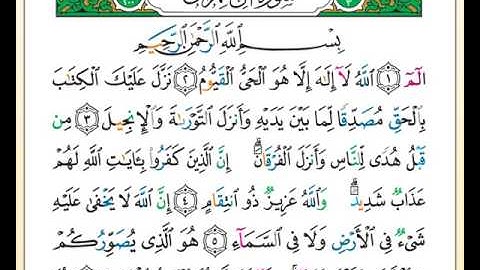 سورة آل عمران
بِسْمِ اللَّهِ الرَّحْمَٰنِ الرَّحِيمِ
الٓمٓ ١ اللَّهُ لَآ إِلَٰهَ إِلَّا هُوَ الْحَيُّ الْقَيُّومُ ٢ نَزَّلَ عَلَيْكَ الْكِتَٰبَ
بِالْحَقِّ مُصَدِّقًا لِّمَا بَيْنَ يَدَيْهِ وَأَنزَلَ التَّوْرَىٰةَ وَالْإِنجِيلَ ٣ مِن
قَبْلُ هُدًى لِّلنَّاسِ وَأَنزَلَ الْفُرْقَانَ ۗ إِنَّ الَّذِينَ كَفَرُوا۟ بِـَٔايَٰتِ اللَّهِ لَهُمْ
عَذَابٌ شَدِيدٌ ۗ وَاللَّهُ عَزِيزٌ ذُو انتِقَامٍ ٤ إِنَّ اللَّهَ لَا يَخْفَىٰ عَلَيْهِ
شَىْءٌ فِى الْأَرْضِ وَلَا فِى السَّمَآءِ ٥ هُوَ الَّذِى يُصَوِّرُكُمْ